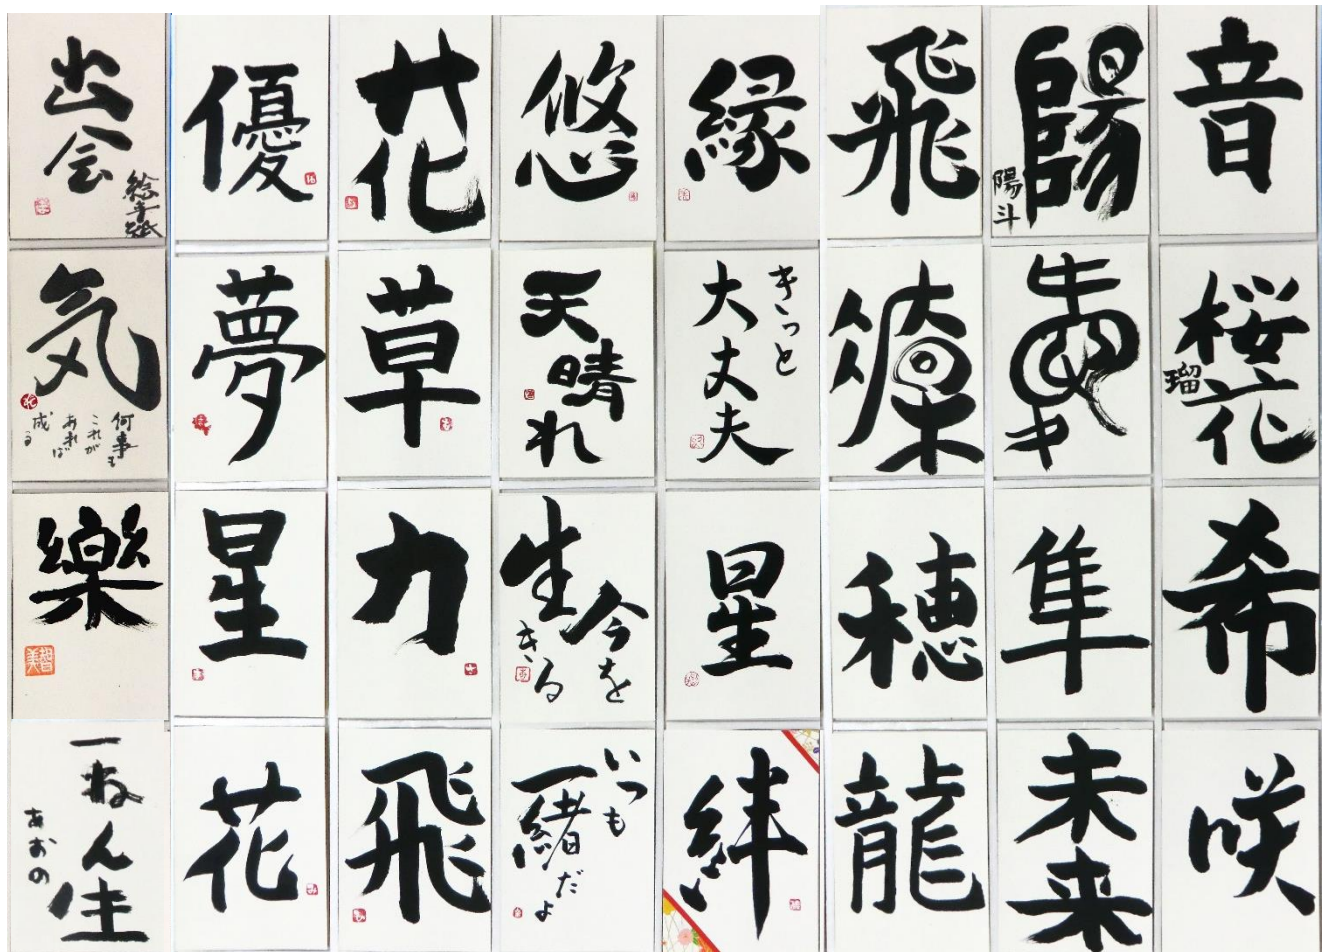 出会
絵手紙
優
花
悠
縁
飛
陽
陽斗
音
気
何事も
これが
あれば
成る
夢
草
天
晴
れ
きっと
大丈夫
凜
桜
瑠
花
樂
智美
星
力
今を
生きる
星
穂
隼
希
一ねん生
あおの
花
飛
いつも
一緒だよ
絆
龍
未来
咲